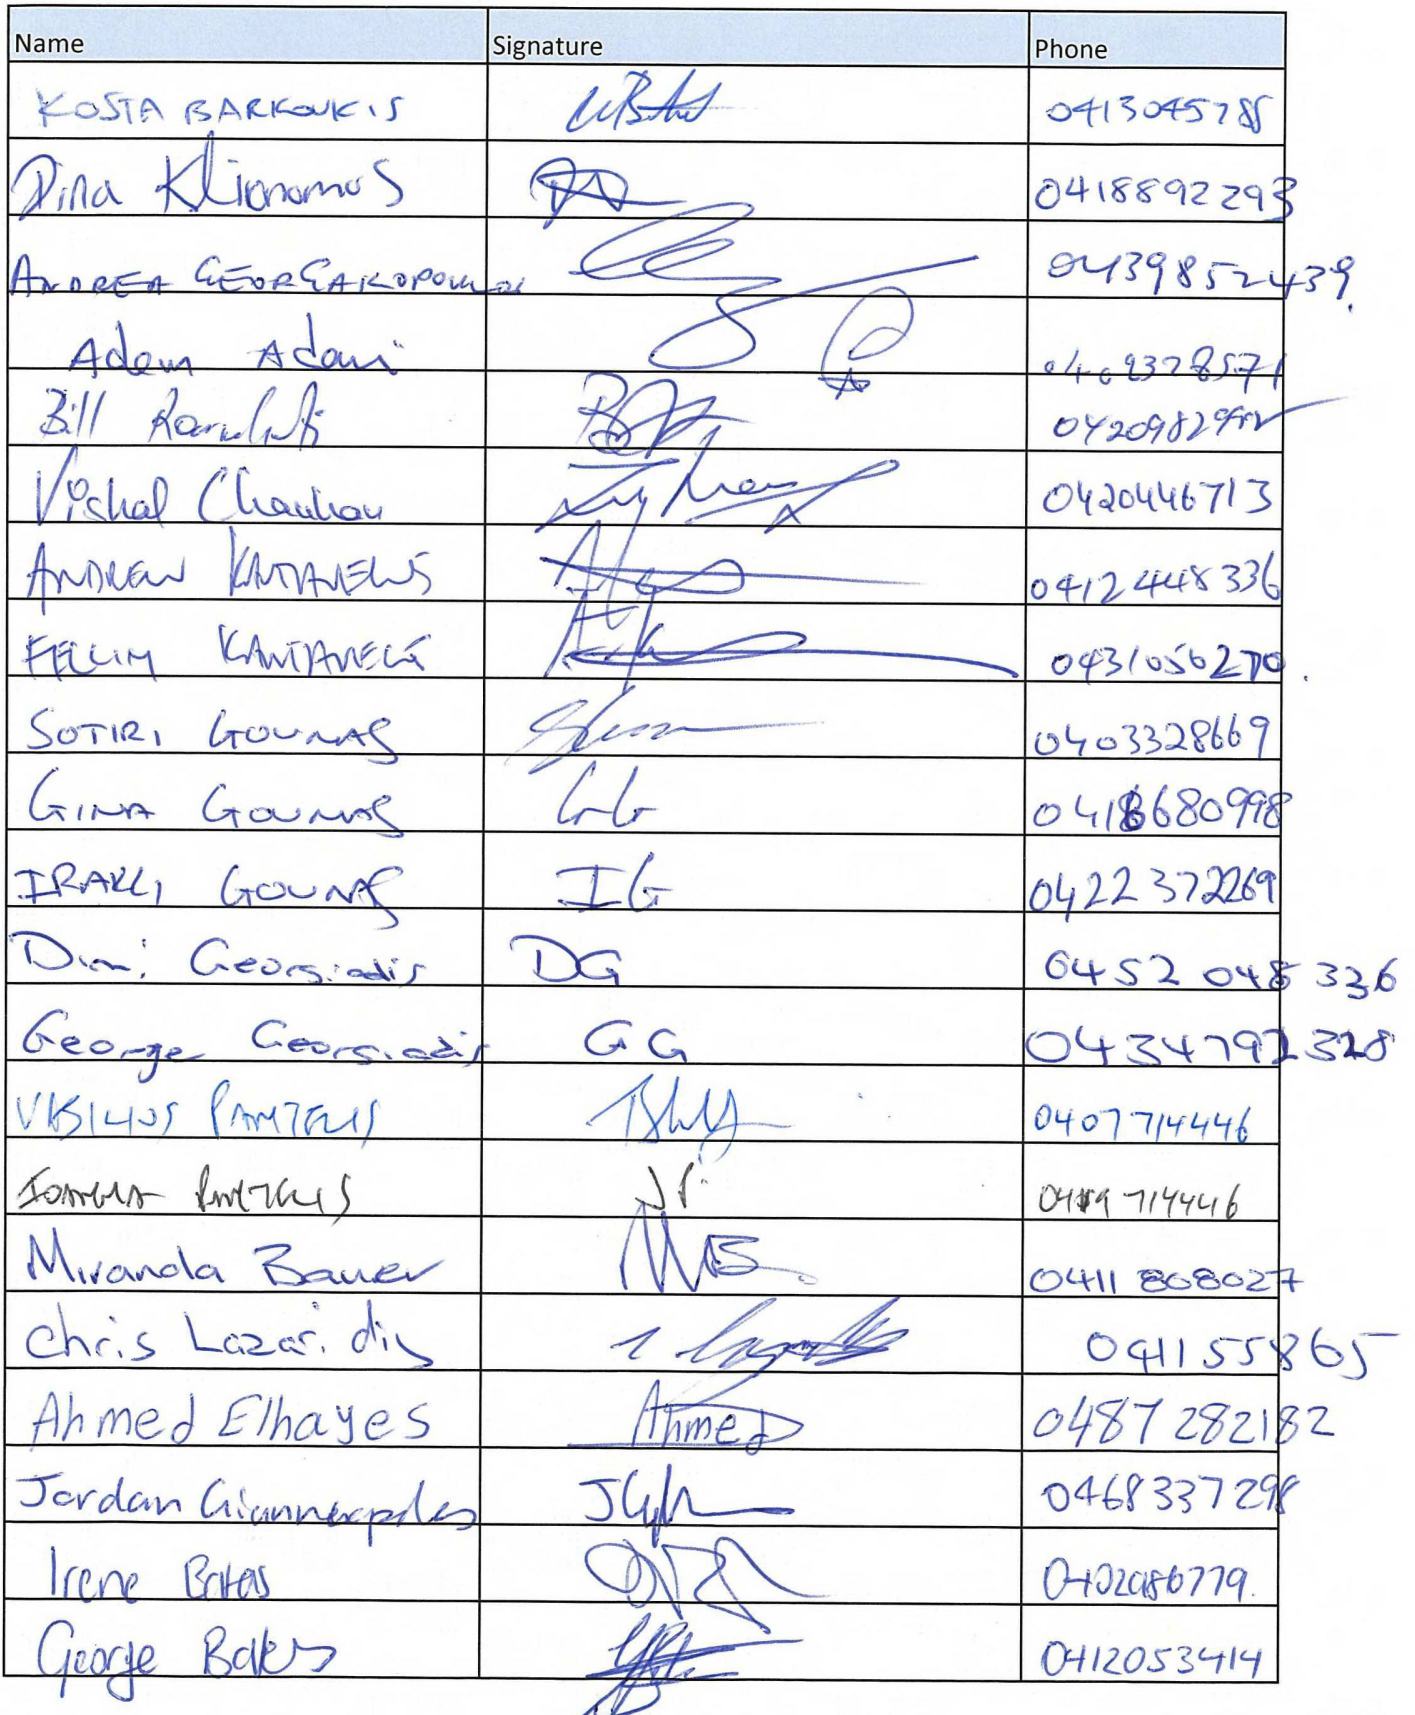 Name Signature Phone
KOSTA BARKOUKIS 0413045788
Dina Klironomos 0418892293
ANDREA GEORGAKOPOULOS 0439852439
Adem Adani
Bill
Vishal Chauhan 0420446713
ANDREW KANTAVELIS 0412448336
KANTAVELIS 0431056270
SOTIRI GOUNAS 0403328669
GINA GOUNAS GG 0418680998
IRAKLI GOUNAS IG 0422372269
Dimi Georgiadis DG 0452 048 336
George Georgiadis GG 0434792328
VASILIOS PANTELIS 0407714446
IOANNA PANTELIS JP 714446
Miranda Bauer MB 0411 808027
Chris Lazaridis 041155865
Ahmed Elhayes Ahmed 0487 282182
Jordan 0468337298
Irene
George 0412053414